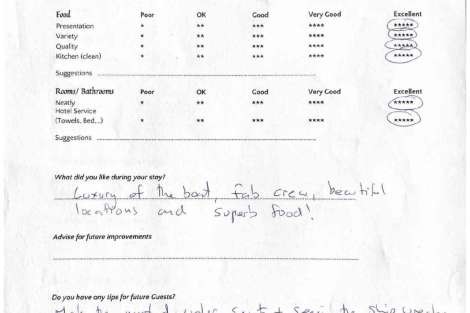 Food Poor OK Good Very Good Excellent
Presentation * ** *** **** *****
Variety * ** *** **** *****
Quality * ** *** **** *****
Kitchen (clean) * ** *** **** *****
Suggestions
Rooms/ Bathrooms Poor OK Good Very Good Excellent
Neatly * ** *** **** *****
Hotel Service
(Towels, Bed...) * ** *** **** *****
Suggestions
What did you like during your stay?
Luxury of the boat, fab crew, beautiful
locations and superb food!
Advise for future improvements
Do you have any tips for future Guests?